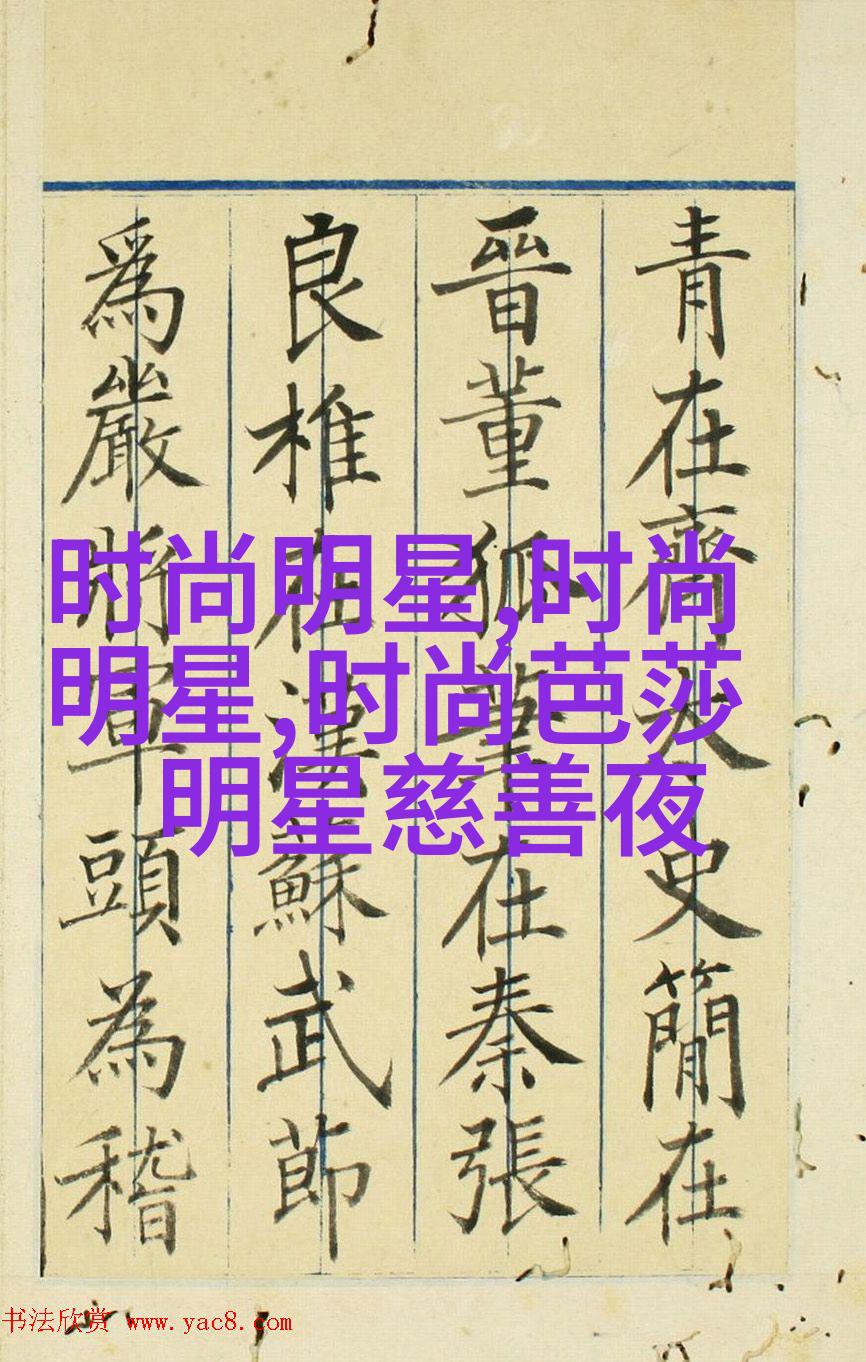 青在齊太史簡在
晉董狐筆在秦張
良椎在漢蘇武節
爲嚴將軍頭為嵇
时尚明星,时尚
明星,时尚芭莎
明星慈善夜
书法欣赏 www.yac8.com